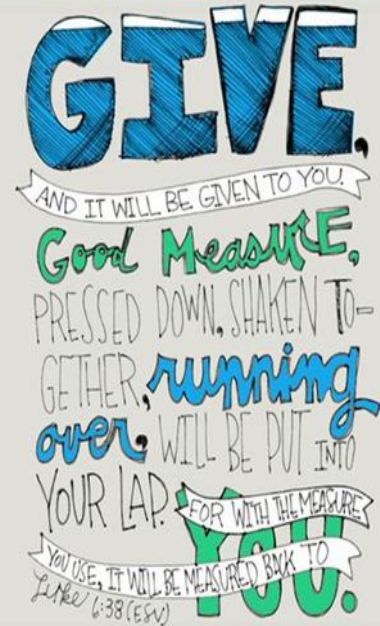 GIVE,
AND IT WILL BE GIVEN TO YOU.
Good MeasurE,
PRESSED DOWN, SHAKEN TO-
GETHER, running
over, WILL BE PUT INTO
YOUR LAP. FOR WITH THE MEASURE
YOU USE, IT WILL BE MEASURED BACK TO
YOU.
Luke 6:38 (ESV)